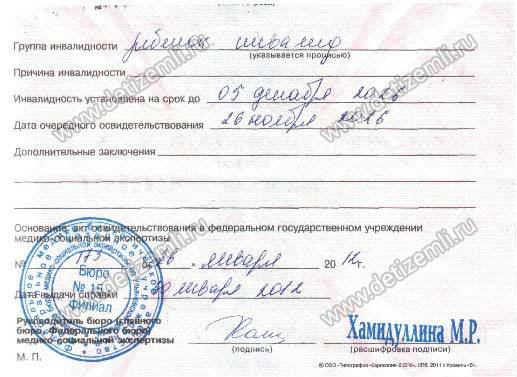 Группа инвалидности ребенок инвалид
(указывается прописью)
Причина инвалидности
Инвалидность установлена на срок до 05 декабря 2016
Дата очередного освидетельствования 26 ноября 2016
Дополнительные заключения
Основание: акт освидетельствования в федеральном государственном учреждении
медико-социальной экспертизы
№ 175 января 2012 г.
Дата выдачи справки 30 января 2012
Руководитель бюро (главного
бюро, Федерального бюро)
медико-социальной экспертизы
Хамидуллина М.Р.
(подпись) (расшифровка подписи)
М. П.
Бюро
№ 15
Филиал
www.detizemli.ru